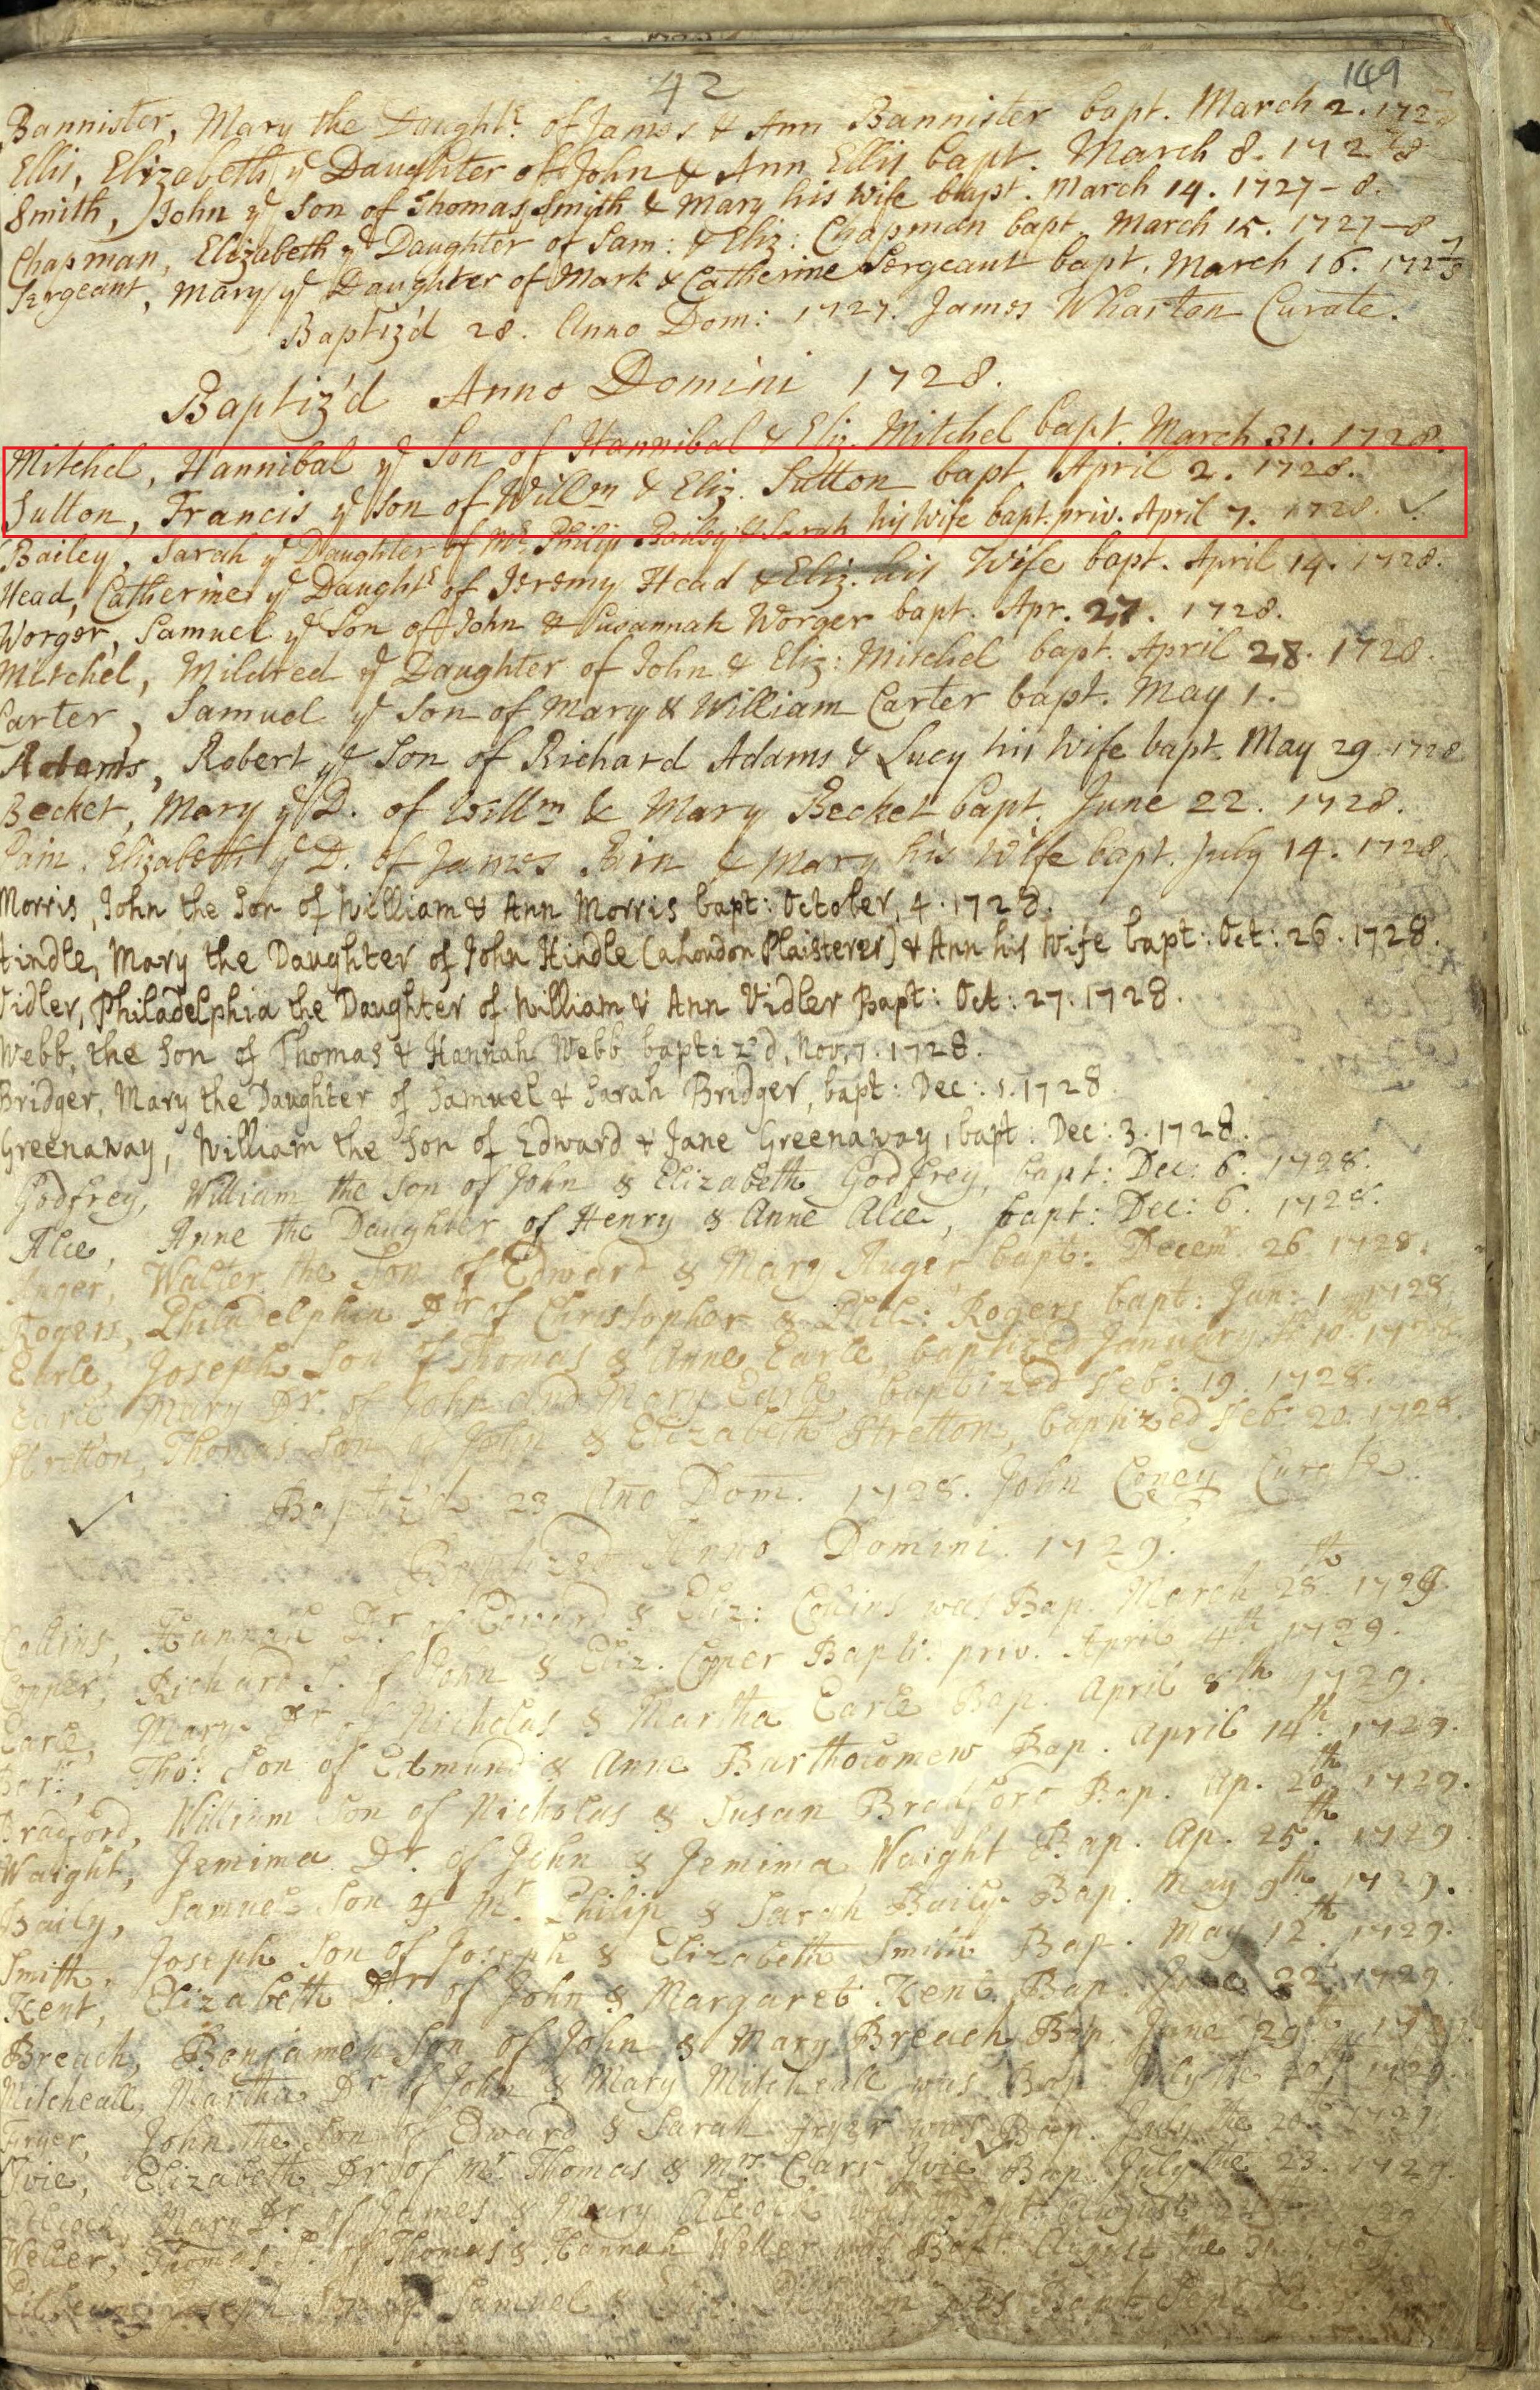 42
149
Bannister, Mary the Daught.r of James & Ann Bannister bapt. March 2. 172
Ellis, Elizabeth ye Daughter of John & Ann Ellis bapt. March 8. 172 7/8
Smith, John ye Son of Thomas Smith & Mary his Wife bapt. March 14. 1727-8.
Chapman, Elizabeth ye Daughter of Sam: & Eliz: Chapman bapt. March 15. 1727-8
Sergeant, Mary ye Daughter of Mark & Catherine Sergeant bapt. March 16. 172 7/8
Baptiz'd 28. Anno Dom: 1727. James Wharton Curate.
Baptiz'd Anno Domini 1728.
Mitchel, Hannibal ye Son of Hannibal & Eliz. Mitchel bapt. March 31. 1728.
Sutton, Francis ye Son of Willm & Eliz. Sutton bapt. April 2. 1728.
Bailey, Sarah ye Daughter of Mr. Philip Bailey & Sarah his Wife bapt. priv. April 7. 1728. ✓
Head, Catherine ye Daught.r of Jeremy Head & Eliz. his Wife bapt. April 14. 1728.
Worger, Samuel ye Son of John & Susannah Worger bapt. Apr. 27. 1728.
Mitchel, Mildred ye Daughter of John & Eliz: Mitchel bapt. April 28. 1728.
Carter, Samuel ye Son of Mary & William Carter bapt. May 1.
Adams, Robert ye Son of Richard Adams & Lucy his Wife bapt. May 29. 1728
Becket, Mary ye D. of Willm & Mary Becket bapt. June 22. 1728.
Pain, Elizabeth ye D. of James Pain & Mary his Wife bapt. July 14. 1728.
Morris, John the Son of William & Ann Morris bapt: October, 4. 1728.
Hindle, Mary the Daughter of John Hindle (a London Plaisterer) & Ann his Wife bapt: Oct: 26. 1728.
Vidler, Philadelphia the Daughter of William & Ann Vidler Bapt: Oct: 27. 1728.
Webb, the Son of Thomas & Hannah Webb baptiz'd, Nov. 7. 1728.
Bridger, Mary the Daughter of Samuel & Sarah Bridger, bapt: Dec: 1. 1728
Greenaway, William the Son of Edward & Jane Greenaway, bapt: Dec: 3. 1728.
Godfrey, William the Son of John & Elizabeth Godfrey, bapt: Dec: 6. 1728.
Alce, Anne the Daughter of Henry & Anne Alce, bapt: Dec: 6. 1728.
Auger, Walter the Son of Edward & Mary Auger bapt: Decemr 26. 1728.
Rogers, Philadelphia Dtr of Christopher & Phil: Rogers bapt: Jan: 1 1728
Earle, Joseph Son of Thomas & Anne Earle, baptized January ye 10th 1728.
Earle Mary Dr. of John and Mary Earle, baptized Feb: 19. 1728.
Stretton, Thomas Son of John & Elizabeth Stretton, baptized Feb: 20. 1728.
✓ Baptiz'd 23 Ano Dom. 1728. John Coney Curate.
Baptized Anno Domini. 1729.
Collins, Hannah Dr. of Edward & Eliz: Collins was Bap. March 28th. 1729.
Copper, Richard S. of John & Eliz. Copper Bapt: priv. April 4th 1729.
Earle, Mary Dr of Nicholas & Martha Earle Bap. April 8th 1729.
Bart:, Tho: Son of Edmund & Anne Bartholomew Bap. April 14th. 1729.
Bradford, William Son of Nicholas & Susan Bradford Bap. Ap. 20th 1729.
Waight, Jemima Dr. of John & Jemima Waight Bap. Ap. 25th. 1729
Baily, Samuel Son of Mr. Philip & Sarah Baily Bap. May 9th 1729.
Smith, Joseph Son of Joseph & Elizabeth Smith Bap. May 12th. 1729.
Kent, Elizabeth Dtr of John & Margaret Kent Bap. June 22. 1729.
Breach, Benjamen Son of John & Mary Breach Bap. June 29th 1729.
Mitcheall, Martha Dr of John & Mary Mitcheall was Bap. July the 20th 1729.
Fryer, John the Son of Edward & Sarah Fryer was Bap. July the 20th 1729.
Ivie, Elizabeth Dr of Mr Thomas & Mrs Clare Ivie Bap. July the 23. 1729.
Mary Dr. of James & Mary Alcock was Bapt. August
Weller, Thomas S. of Thomas & Hannah Weller was Bapt. August the 31. 1729.
Joseph Son of Samuel & was Bapt. Sep.